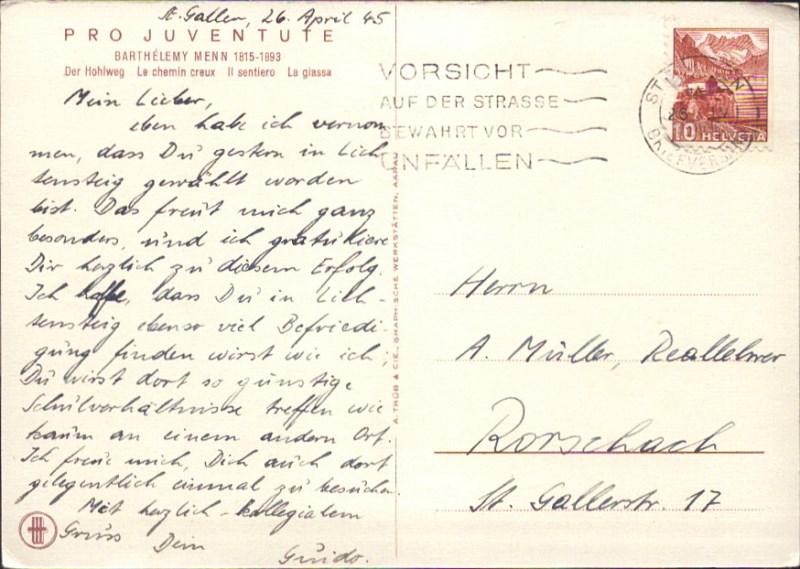 St. Gallen, 26. April 45
PRO JUVENTUTE
BARTHÉLEMY MENN 1815-1893
Der Hohlweg Le chemin creux Il sentiero La giassa
Mein Lieber,
eben habe ich vernom
men, dass Du gestern in Lich
tensteig gewählt worden
bist. Das freut mich ganz
besonders, und ich gratuliere
Dir herzlich zu diesem Erfolg.
Ich hoffe, dass Du in Lich-
tensteig ebenso viel Befriedi-
gung finden wirst wie ich;
Du wirst dort so günstige
Schulverhältnisse treffen wie
kaum an einem andern Ort.
Ich freue mich, Dich auch dort
gelegentlich einmal zu besuchen.
Mit herzlich-kollegialem
Gruss Dein
Guido.
A. TRÜB & CIE., GRAPHISCHE WERKSTÄTTEN, AARAU
VORSICHT
AUF DER STRASSE
BEWAHRT VOR
UNFÄLLEN
ST. GALLEN
BRIEFVERSAND
10 HELVETIA
Herrn
A. Müller, Reallehrer
Rorschach
St. Gallerstr. 17